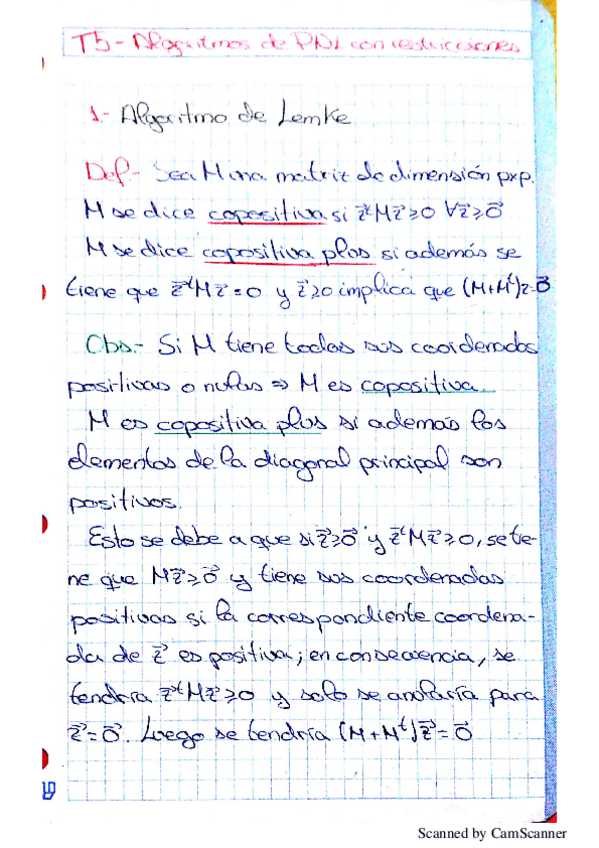 T5- Algoritmos de PNL con restricciones
1- Algoritmo de Lemke
Def- Sea M una matriz de dimensión pxp.
M se dice copositiva si z⃗ᵗMz⃗≥0 ∀z⃗≥0⃗
M se dice copositiva plus si además se
tiene que z⃗ᵗMz⃗=0 y z⃗≥0 implica que (M+Mᵗ)z=0⃗
Obs- Si M tiene todas sus coordenadas
positivas o nulas ⇒ M es copositiva
M es copositiva plus si además los
elementos de la diagonal principal son
positivos.
Esto se debe a que si z⃗≥0⃗ y z⃗ᵗMz⃗≥0, se tie-
ne que Mz⃗≥0⃗ y tiene sus coordenadas
positivas si la correspondiente coordena-
da de z⃗ es positiva; en consecuencia, se
tendría z⃗ᵗMz⃗≥0 y solo se anularía para
z⃗=0⃗. Luego se tendría (M+Mᵗ)z⃗=0⃗
Scanned by CamScanner